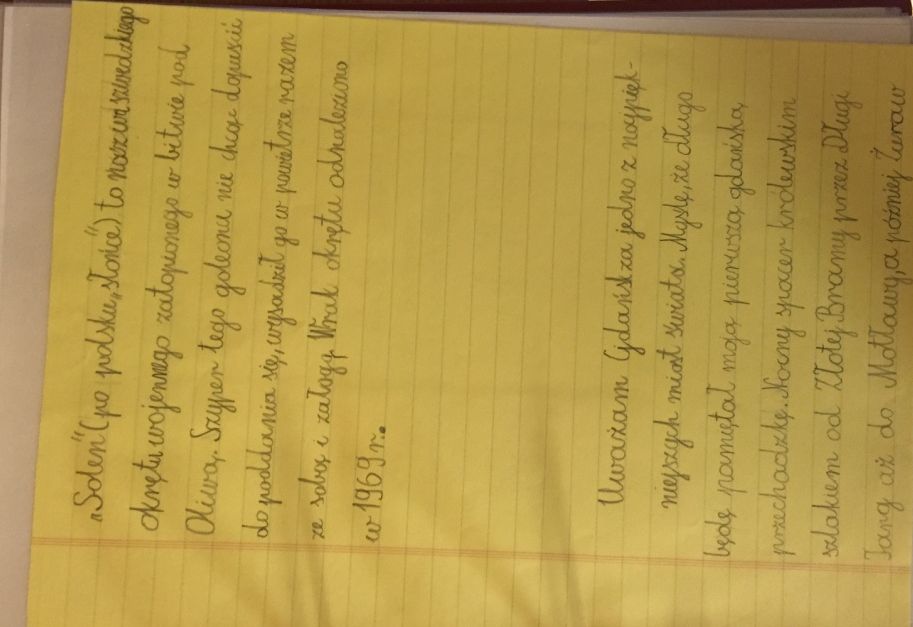 „Solen" (po polsku „słońce") to nazwa szwedzkiego
okrętu wojennego zatopionego w bitwie pod
Oliwą. Szyper tego galeonu nie chcąc dopuścić
do poddania się, wysadził go w powietrze razem
ze sobą i załogą. Wrak okrętu odnaleziono
w 1969 r.
Uważam Gdańsk za jedno z najpięk-
niejszych miast świata. Myślę, że długo
będę pamiętał moją pierwszą gdańską
przechadzkę. Nocny spacer królewskim
szlakiem od Złotej Bramy przez Długi
Targ aż do Motławy, a później Żuraw